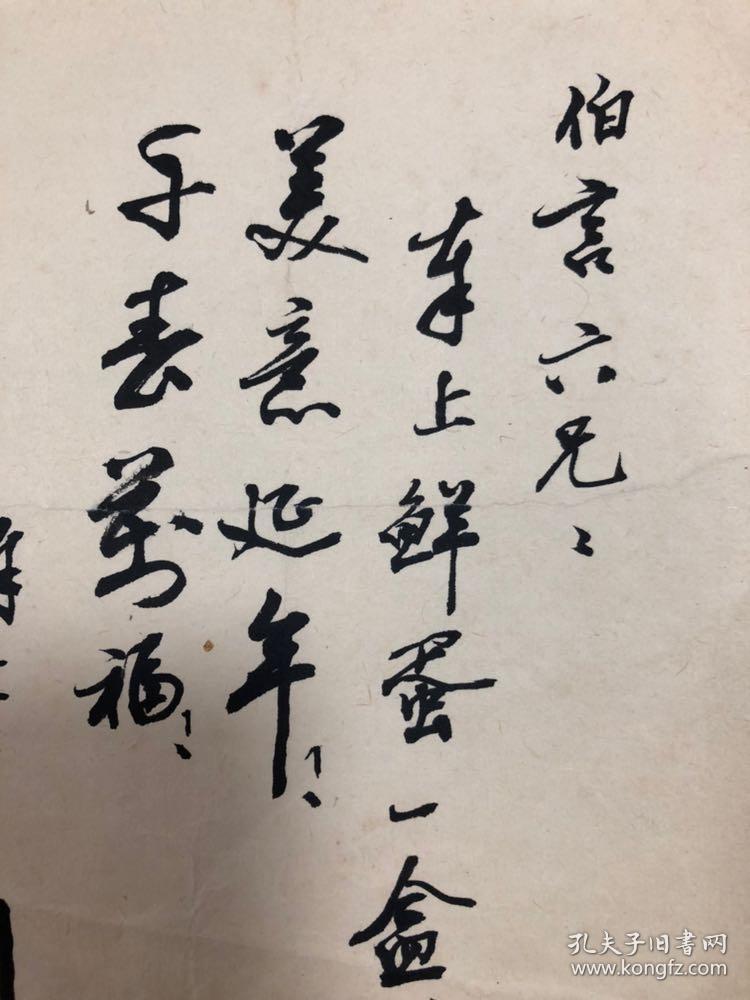 伯言六兄：
奉上鲜蛋一盒
美意延年！
千春萬福！
孔夫子旧書网
www.kongfz.com